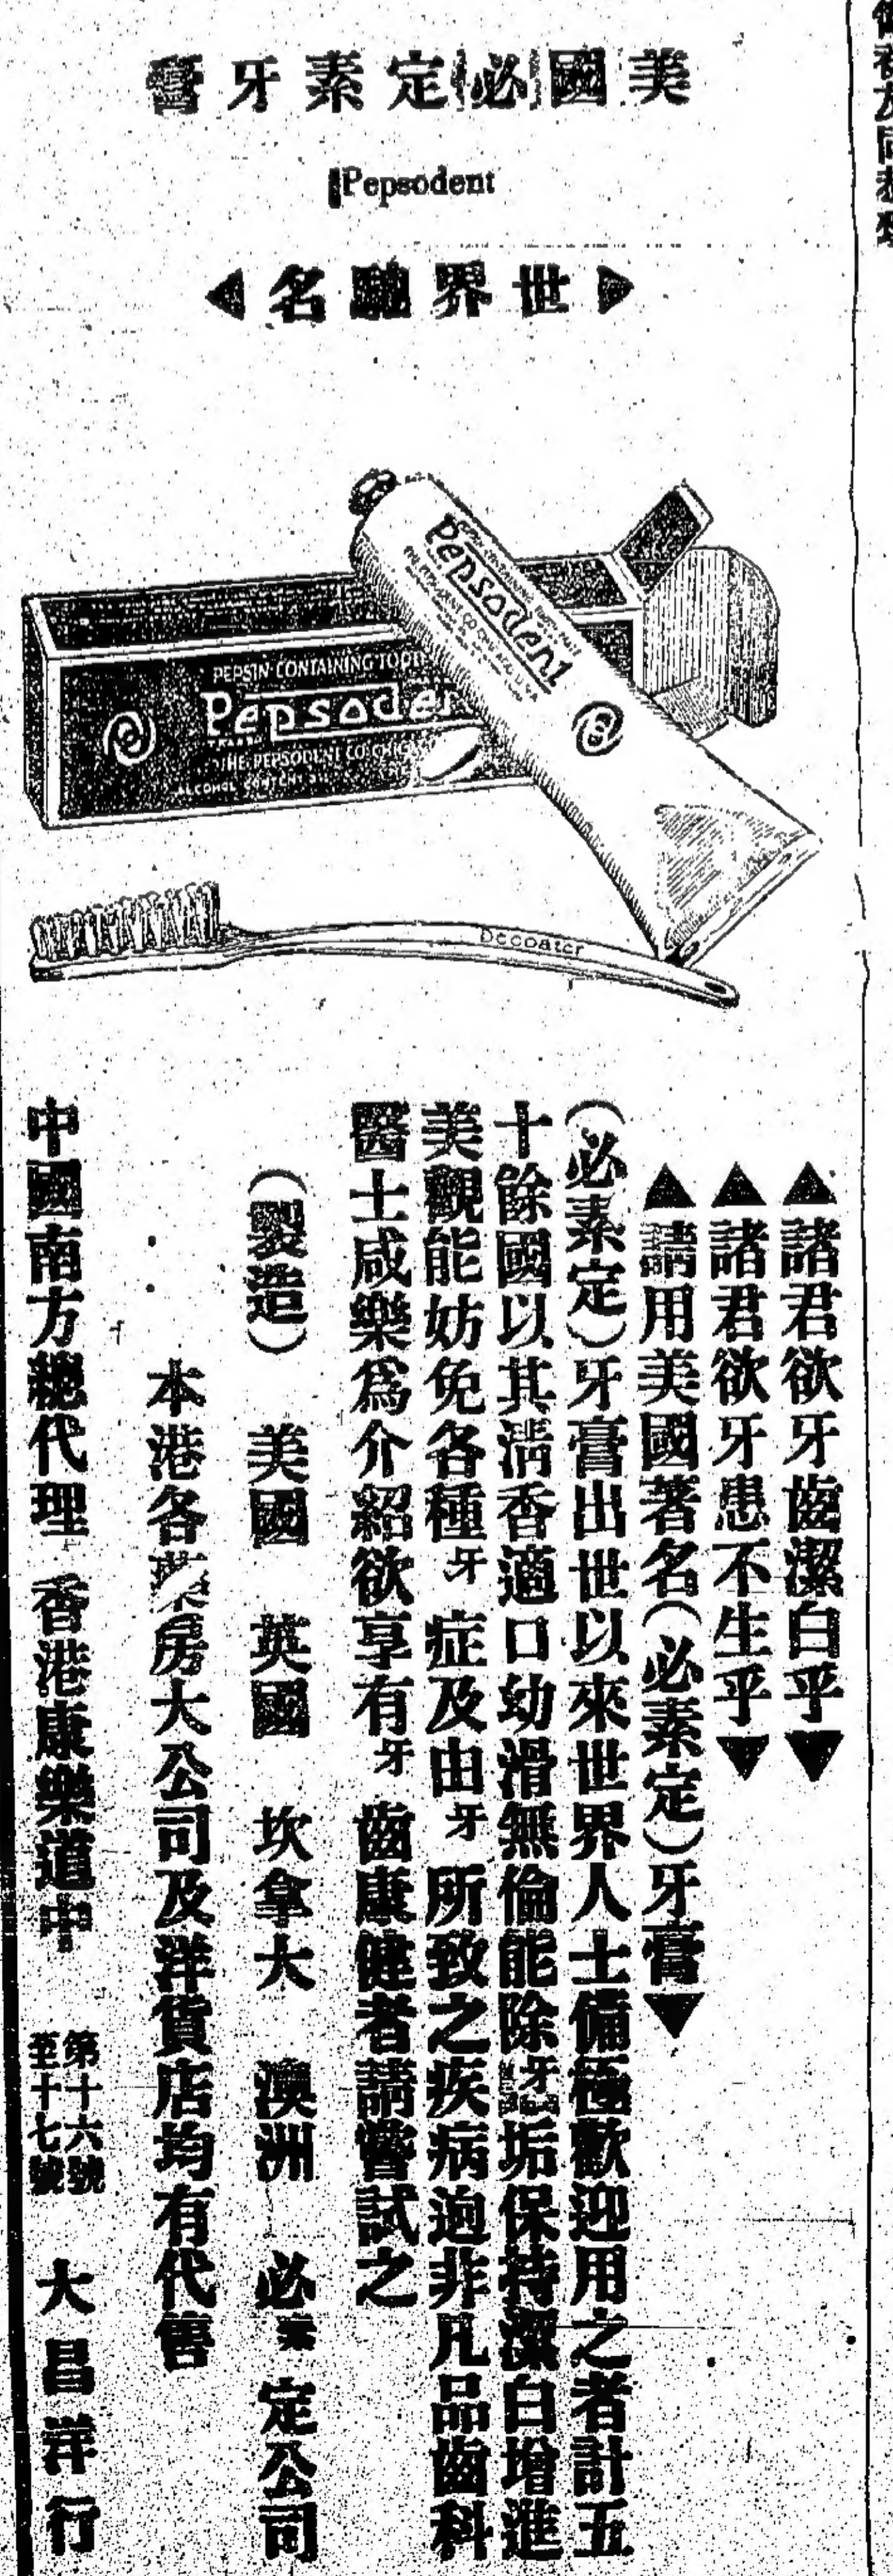 美國必定素牙膏
Pepsodent
世界馳名
PEPSIN-CONTAINING TOOTH PASTE
Pepsodent
THE PEPSODENT CO CHICAGO U.S.A.
PEPSIN-CONTAINING TOOT
Pepsode
THE PEPSODENT CO CHIC
ALCOHOL
Decoater
▲諸君欲牙齒潔白乎▼
▲諸君欲牙患不生乎▼
▲請用美國著名(必素定)牙膏▼
(必素定)牙膏出世以來世界人士備極歡迎用之者計五
十餘國以其清香適口幼滑無倫能除牙垢保持潔白增進
美觀能妨免各種牙症及由牙所致之疾病逈非凡品齒科
醫士咸樂爲介紹欲享有牙齒康健者請嘗試之
(製造) 美國 英國 坎拿大 澳洲 必素定公司
本港各藥房大公司及洋貨店均有代售
中國南方總代理 香港康樂道中 第十六號至十七號 大昌洋行